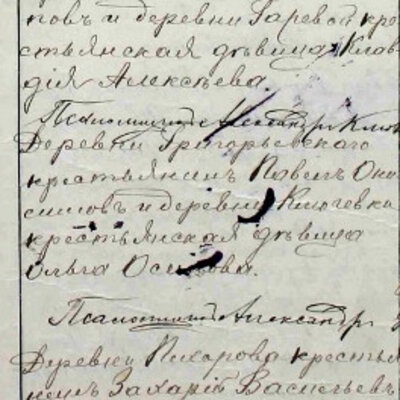 повъ и деревни Гаревой кре
стьянская дѣвица Клав-
дія Алексѣева.
Псаломщикъ Александръ Клю
Деревни Григорьевскаго
крестьянинъ Павелъ Они
симовъ и деревни Ключевка
крестьянская дѣвица
Ольга Осипова.
Псаломщикъ Александръ
Деревни Пихарова крестья
нинъ Захарій Васильевъ